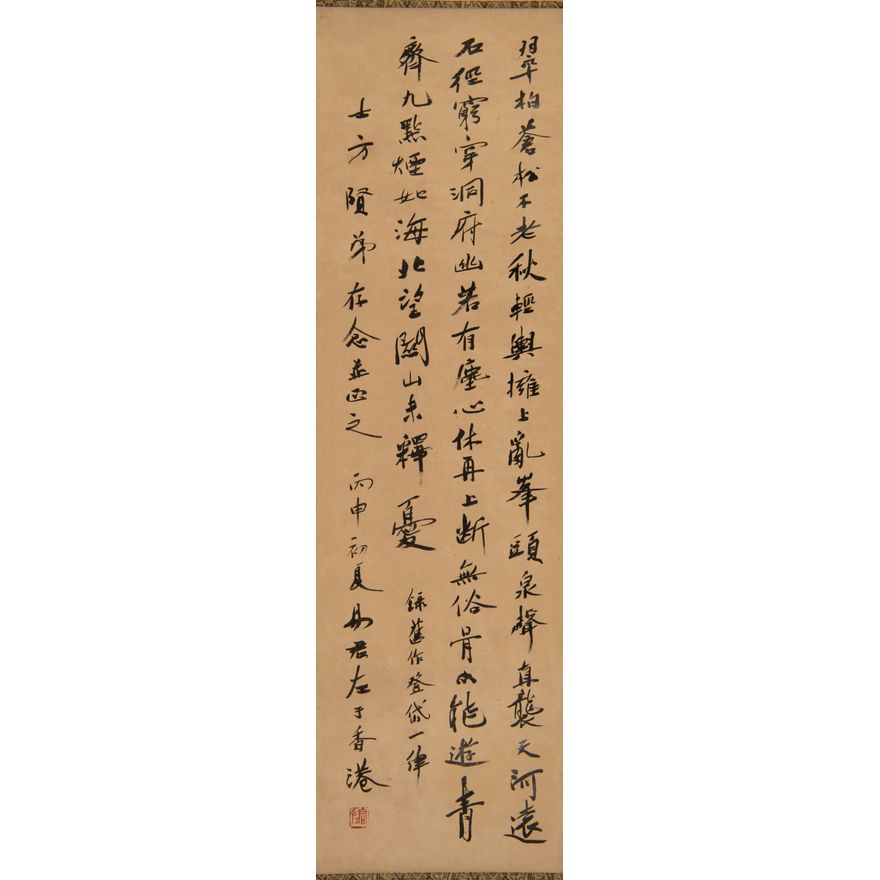 翠柏蒼松不老秋輕輿擁上亂峯頭泉聲直襲天河遠
石徑窮穿洞府幽若有塵心休再上斷無俗骨此能遊青
齊九點煙如海北望關山未釋憂
錄舊作登岱一律
士方賢弟存念並正之 丙申初夏易君左于香港